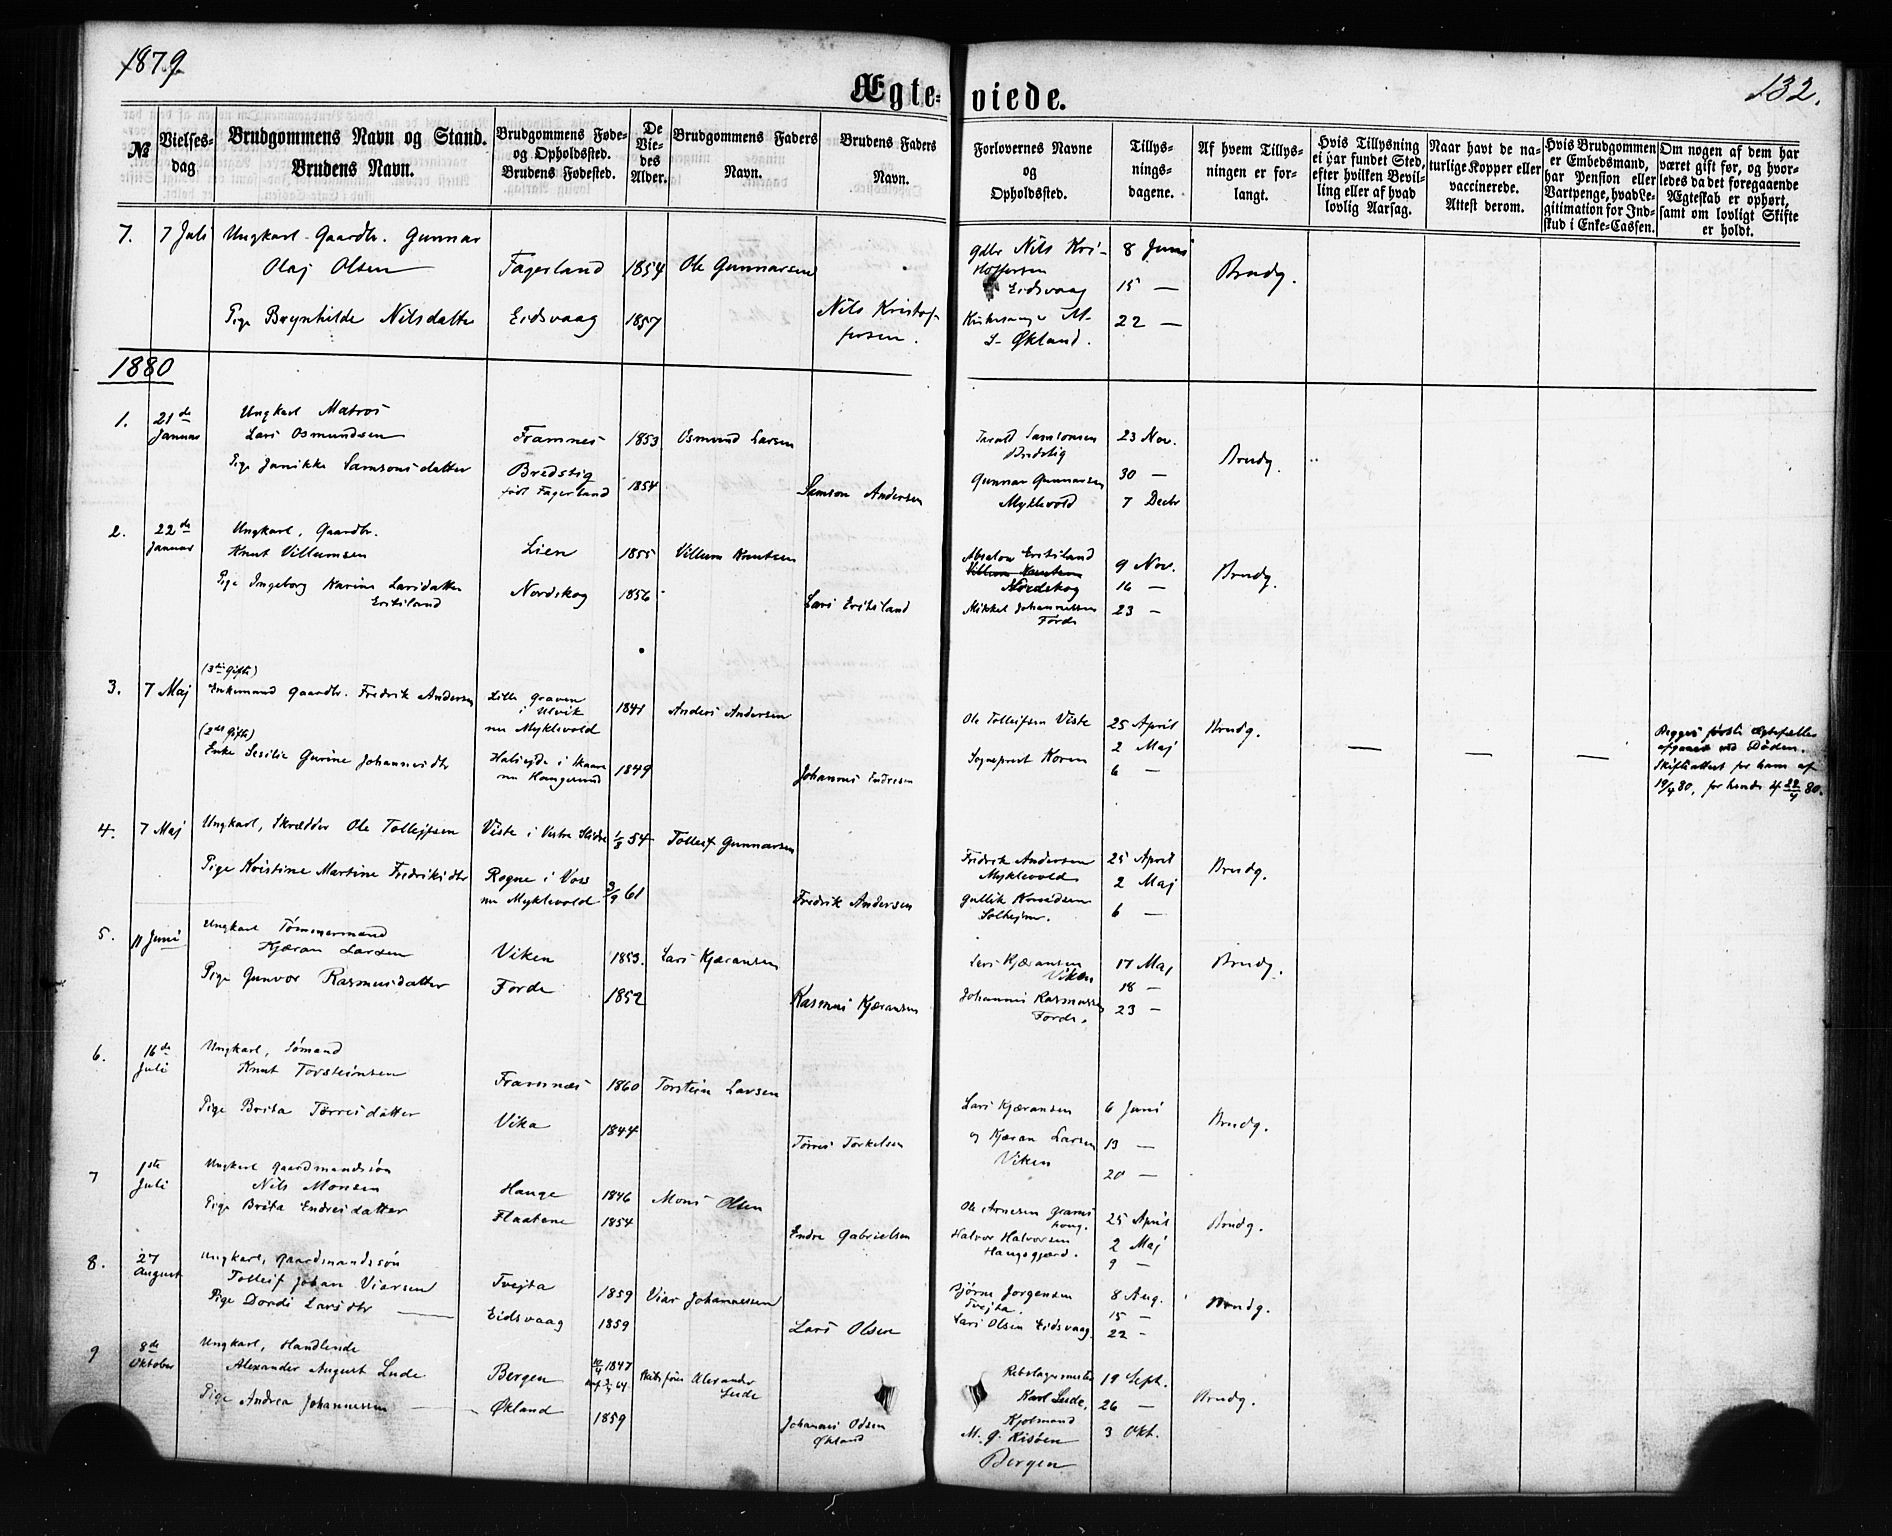 1879.
132.
Ægte-viede.
№
Vielses-dag
Brudgommens Navn og Stand.
Brudens Navn.
Brudgommens Føde-
og Opholdssted.
Brudens Fødested.
De Vie-des Alder.
Brudgommens Faders
Navn.
Brudens Faders
Navn.
Forlovernes Navne
og
Opholdssted.
Tillys-
nings-
dagene.
Af hvem Tillys-
ningen er for-
langt.
Hvis Tillysning
ei har fundet Sted,
efter hvilken Bevil-
ling eller af hvad
lovlig Aarsag.
Naar havt de na-
turlige Kopper eller
vaccinerede.
Attest derom.
Hvis Brudgommen
er Embedsmand,
har Pension eller
Vartpenge, hvad Le-
gitimation for Ind-
skud i Enke-Cassen.
Om nogen af dem har
været gift før, og hvor-
ledes da det foregaaende
Ægteskab er ophørt,
samt om lovligt Skifte
er holdt.
7. 7 Juli Ungkarl Gaardbr. Gunnar
Olaj Olsen Fagerland 1854 Ole Gunnarsen
Pige Brynhilde Nilsdatter Eidsvaag 1857 Nils Kristof-
fersen.
Gdbr Nils Kri-
stoffersen
Eidsvaag
Kirkesanger M.
S. Økland.
8 Juni
15 —
22 —
Brudg.
1880
1. 21de Januar Ungkarl Matros
Lars Osmundsen Framnes 1853 Osmund Larsen
Pige Janikke Samsonsdatter Bredstig
født Fagerland 1854 Samson Andersen
Tarald Samsonsen
Bredstig
Gunnar Gunnarsen
Myklevold
23 Nov.
30 —
7 Decbr
Brudg.
2. 22de Januar Ungkarl, Gaardbr.
Knut Villumsen Lien 1855 Villum Knutsen
Pige Ingeborg Karine Larsdatter
Eritsland Nordskog 1856 Lars Eritsland
Absalon Eritsland
Villum Knutsen
Nordskog
Mikkel Johannessen
Førde
9 Nov.
16 —
23 —
Brudg.
3. 7 Maj (3die Gifte)
Enkemand Gaardbr. Fredrik Andersen Lille Graven
i Ulvik
nu Myklevold 1841 Anders Andersen
(2det Gifte)
Enke Sesilie Gurine Johannesdtr
1849 Johannes Endresen
Ole Tolleifsen Viste
Sogneprest Koren
25 April
2 Maj
6 —
Brudg.
— — —
Begges første Ægtefæller
afgaaet ved Døden.
Skifteattest for ham af
19/4 80, for hende af 22/4 80.
4. 7 Maj Ungkarl, Skrædder Ole Tolleifsen Viste i Vestre Slidre 1/8 54 Tolleif Gunnarsen
Pige Kristine Martine Fredriksdtr Rogne i Voss
nu Myklevold 3/9 61 Fredrik Andersen
Fredrik Andersen
Myklevold
Gullik Knudsen
Solheim.
25 April
2 Maj
6 —
Brudg.
5. 11 Juni Ungkarl Tømmermand
Kjæran Larsen Viken 1853. Lars Kjæransen
Pige Gunvor Rasmusdatter Førde 1852 Rasmus Kjæransen
Lars Kjæransen
Viken
Johannes Rasmussen
Førde.
17 Maj
18 —
23 —
Brudg.
6. 16de Juli Ungkarl, Sømand
Knut Torsteinsen Framnæs 1860 Torstein Larsen
Pige Brita Tørresdatter Vika 1844 Tørres Torkelsen
Lars Kjæransen
og Kjæran Larsen
Viken
6 Juni
13 —
20 —
Brudg.
7 1ste Juli Ungkarl Gaardmandssøn
Nils Monsen Hauge 1846 Mons Olsen
Pige Brita Endresdatter Flaatene 1854 Endre Gabrielsen
Ole Arnesen Gramshoug.
Halvor Halvorsen
Haugsgjerd.
25 April
2 Maj
9 —
Brudg.
8. 27 August Ungkarl, Gaardmandssøn
Tolleif Johan Viarsen Tvejta 1859 Viar Johannessen
Pige Dordi Larsdtr — Eidsvaag 1859 Lars Olsen
Bjørne Jørgensen
Tvejta.
Lars Olsen Eidsvaag.
8 Aug.
15 —
22 -
Brudg.
9 8de Oktober Ungkarl, Handlende
Alexander August Lude Bergen 1847 Skibsfører Alexander
Lude
Pige Andrea Johannessen — Økland 1859 Johannes Odsen
Økland
Rebslagermester
Karl Lude,
Kjøbmand
M. G. Risøen
Bergen
19 Sept.
26 —
3 Okt.
Brudg.